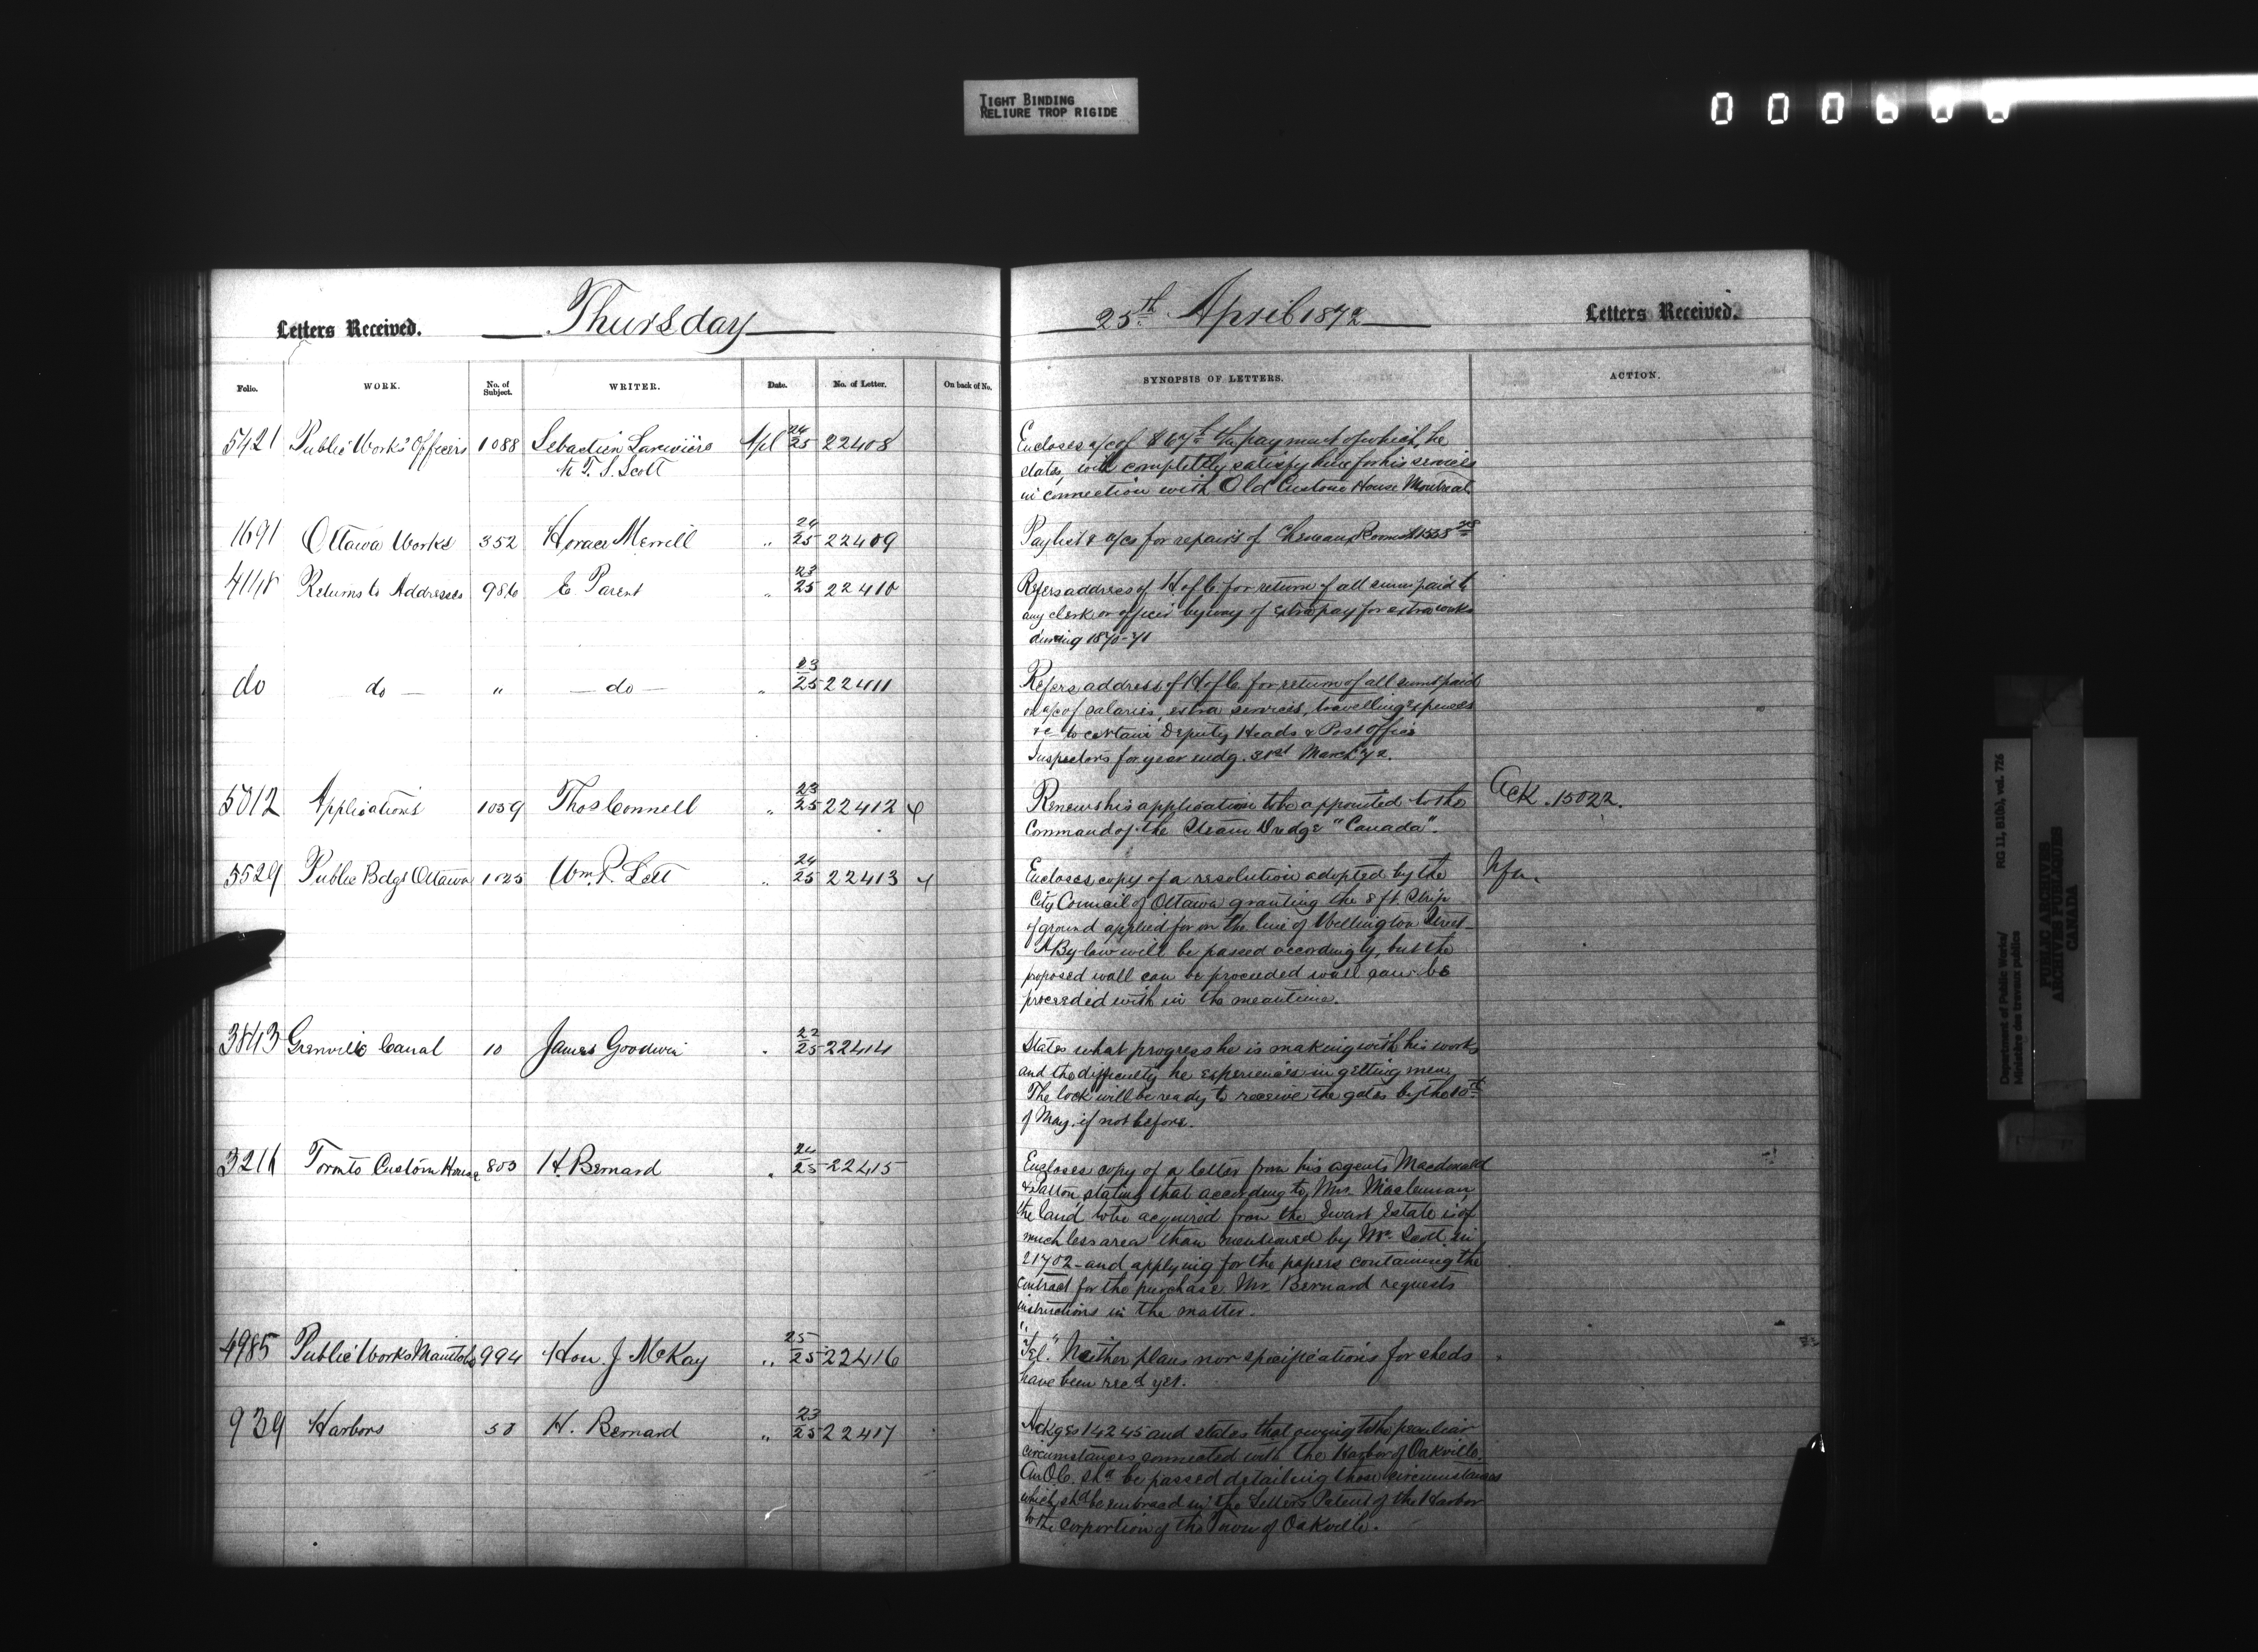 TIGHT BINDING
RELIURE TROP RIGIDE
Letters Received. Thursday
25th April 1872 Letters Received.
Folio. WORK. No. of Subject. WRITER. Date. No. of Letter. On back of No.
SYNOPSIS OF LETTERS. ACTION.
5421 Public Works Officers 1088 Sebastien Lariviere Apl 24/25 22408
to T. S. Scott
Encloses a/c of $67 the payment of which, he
states, will completely satisfy him for his services
in connection with Old Custom House Montreal.
1691 Ottawa Works 352 Horace Merrill " 24/25 22409
Paylist & a/cs for repairs of
4148 Returns to Addresses 986 E Parent " 23/25 22410
Refers address of H of C. for return of all sums paid to
any clerk or officer by way of extra pay for extra works
during 1870-71
do do " do " 23/25 22411
Refers address of H of C. for return of all sums paid
on a/c of salaries, extra services, travelling expenses
&c to certain Deputy Heads & Post Office
Inspectors for year endg. 31st March 72.
5012 Applications 1059 Thos Connell " 23/25 22412
Renews his application to be appointed to the
Command of the Steam Dredge "Canada".
Ack. 15022.
5529 Public Bdgs Ottawa 1025 Wm. P. Lett " 24/25 22413
Encloses copy of a resolution adopted by the
City Council of Ottawa granting the 8 ft. Strip
of ground applied for on the line of Wellington Street
A By-law will be passed accordingly, but the
proposed wall can be proceeded wall can be
proceeded with in the meantime.
3843 Grenville Canal 10 James Goodwin " 22/25 22414
States what progress he is making with his works
and the difficulty he experiences in getting men.
The lock will be ready to receive the gates by the 10th
of May, if not before.
3216 Toronto Custom House 803 H. Bernard " 24/25 22415
Encloses copy of a letter from his agents Macdonald
& Patton, stating that according to Mr. Maclennan,
the land to be acquired from the Ewart Estate is of
much less area than mentioned by Mr. Scott in
21702 - and applying for the papers containing the
contract for the purchase. Mr. Bernard requests
instructions in the matter.
4985 Public Works Manitoba 994 Hon. J McKay " 25/25 22416
"Tel." Neither plans nor specifications for sheds
have been recd yet.
939 Harbors 58 H. Bernard " 23/25 22417
Ackges 14245 and states that owing to the peculiar
circumstances connected with the Harbor of Oakville,
An O.C. shd be passed detailing those circumstances
which shd be embraced in the Letters Patent of the Harbor
to the corportion of the Town of Oakville.
Department of Public Works/
Ministère des travaux publics
RG 11, B1(b), vol. 726
PUBLIC ARCHIVES
ARCHIVES PUBLIQUES
CANADA